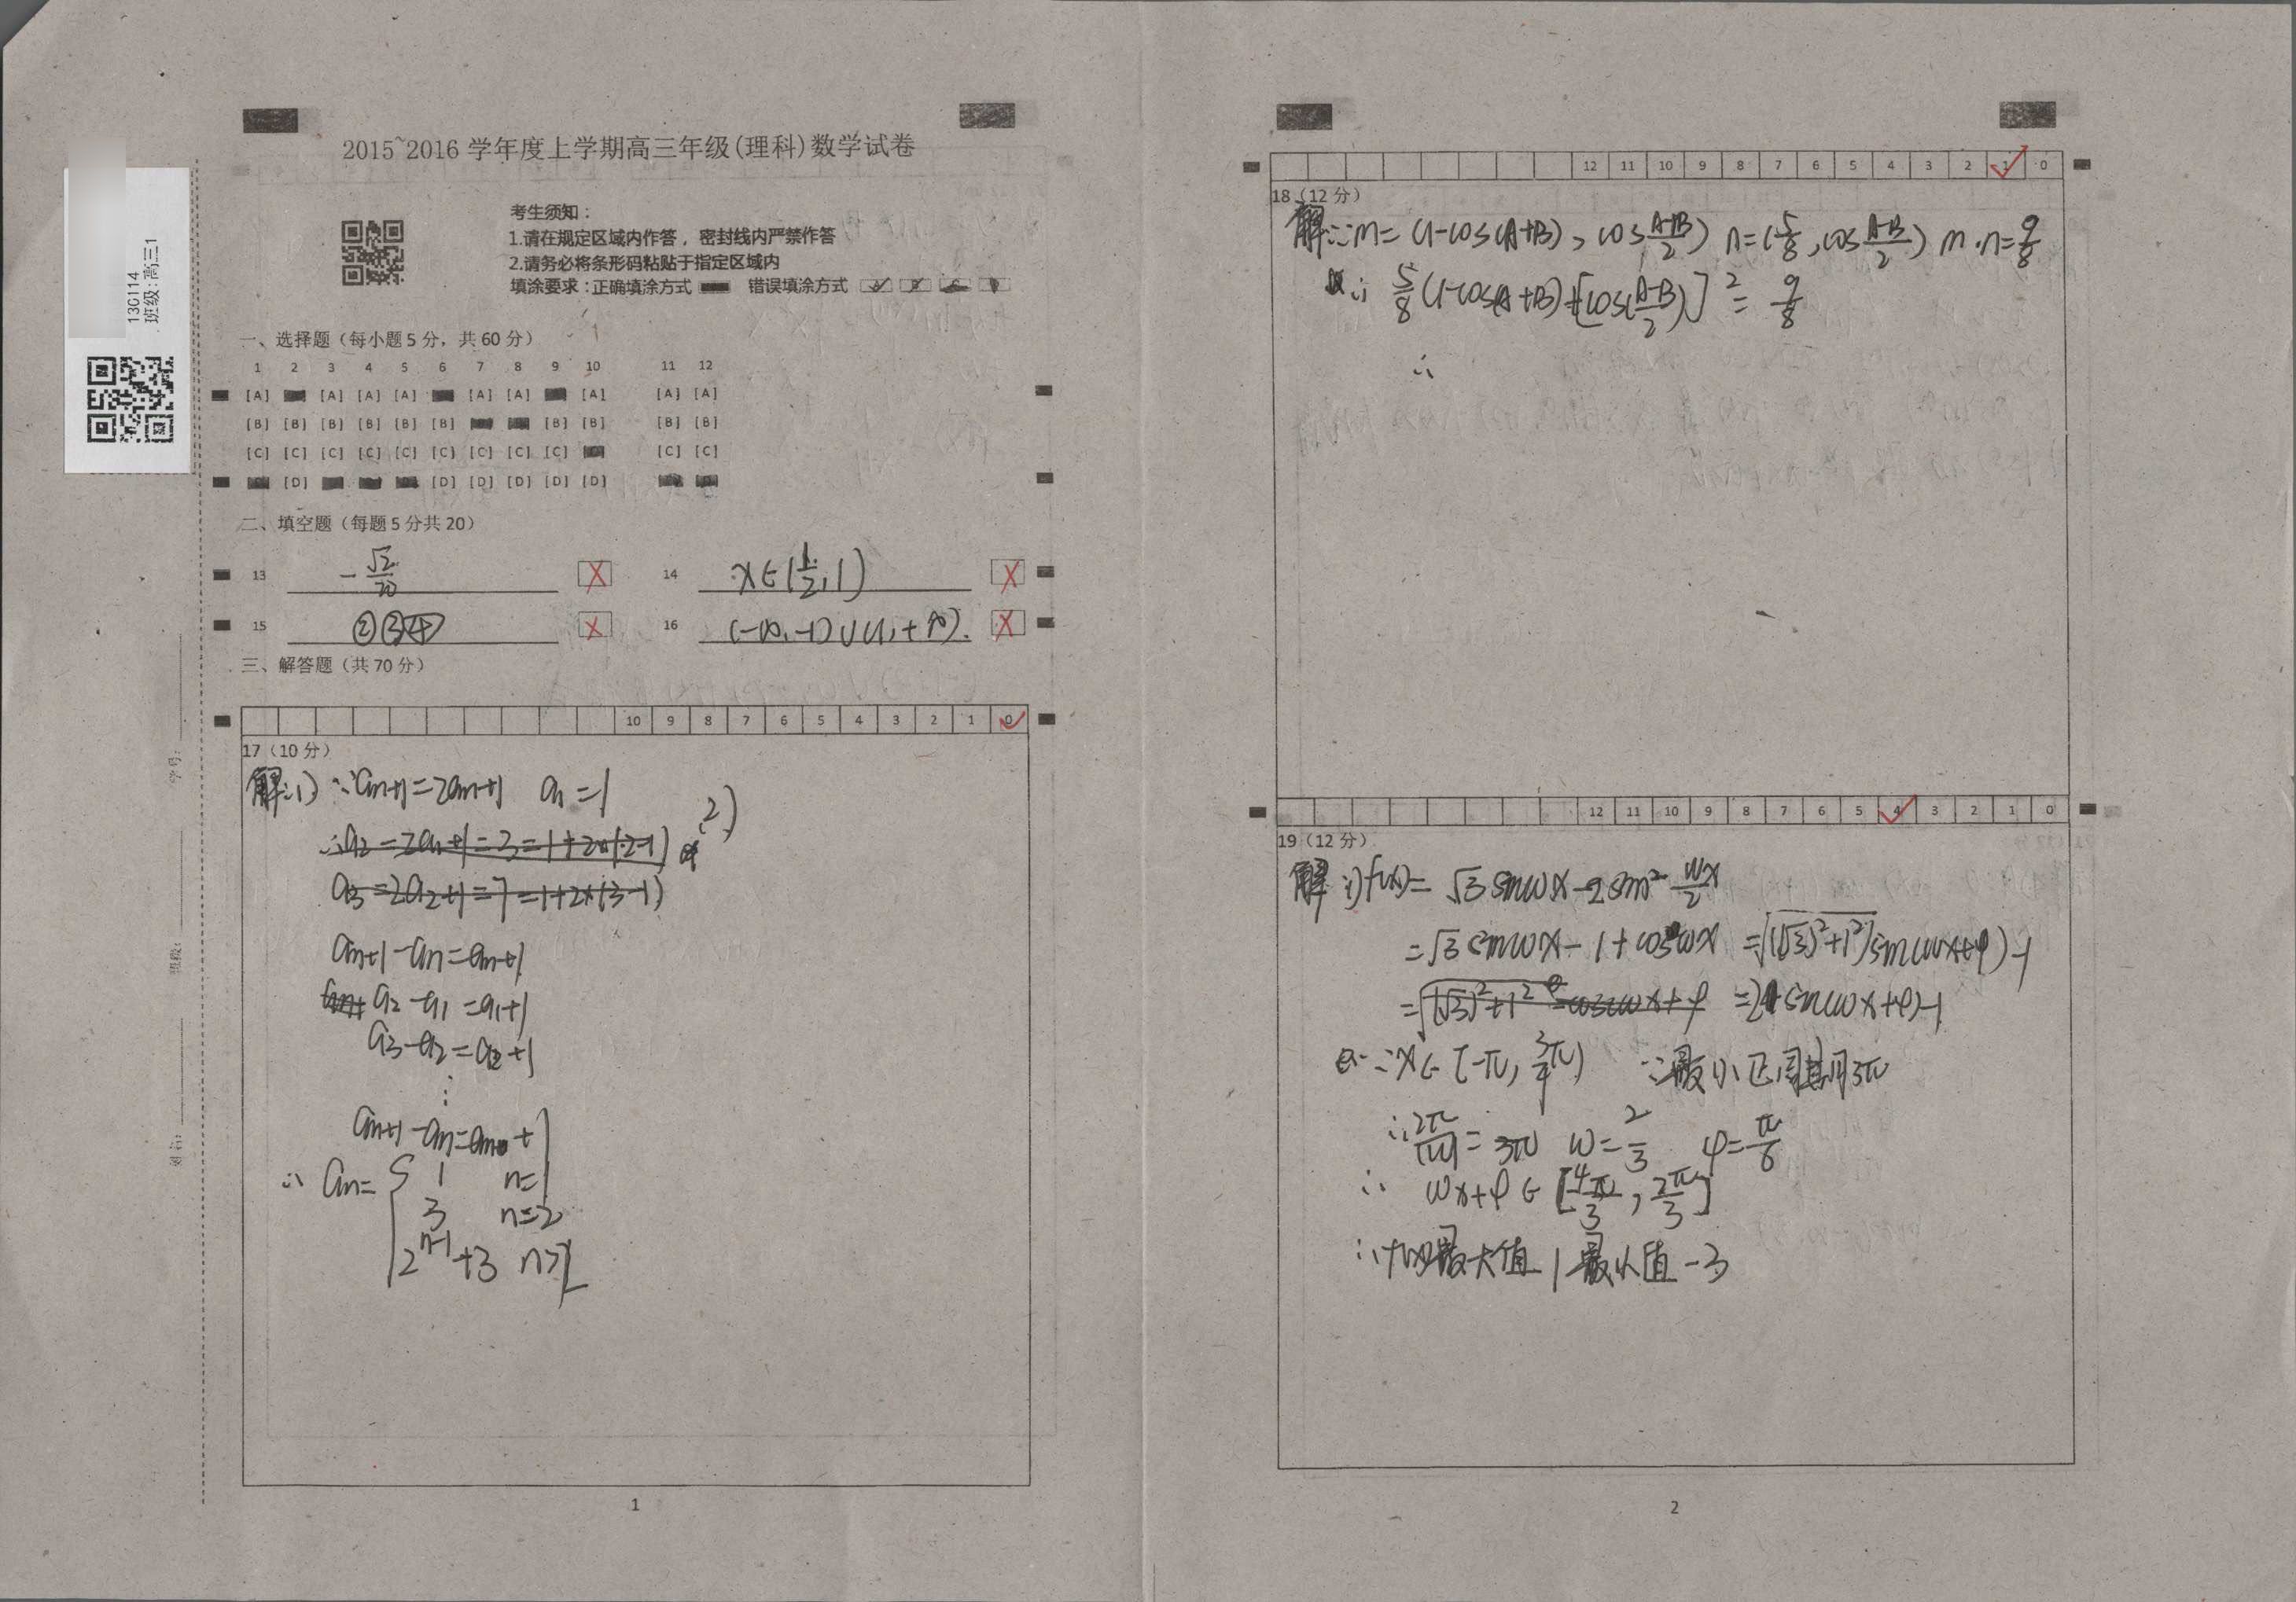 2015~2016 学年度上学期高三年级(理科)数学试卷
13G114
班级:高三1
考生须知:
1.请在规定区域内作答，密封线内严禁作答
2.请务必将条形码粘贴于指定区域内
填涂要求:正确填涂方式 错误填涂方式
一、选择题（每小题5分，共60分）
1 2 3 4 5 6 7 8 9 10 11 12
[A] [A] [A] [A] [A] [A] [A] [A] [A]
[B] [B] [B] [B] [B] [B] [B] [B] [B] [B]
[C] [C] [C] [C] [C] [C] [C] [C] [C] [C] [C]
[D] [D] [D] [D] [D] [D]
二、填空题（每题5分共20）
13 -√2/20 X 14 x∈(1/2,1) X
15 ②③④ X 16 (-∞,-1)∪(1,+∞). X
三、解答题（共70分）
10 9 8 7 6 5 4 3 2 1 0
17（10分）
解:1) ∵an+1=2an+1 a1=1
(2)
∴a2=2a1+1=3=1+2×(2-1)
a3=2a2+1=7=1+2×(3-1)
an+1-an=an+1
a2-a1=a1+1
a3-a2=a2+1
⋮
an+1-an=an+1
∴ an={ 1 n=1
3 n=2
2^(n-1)+3 n>2
学号:
班级:
姓名:
1
12 11 10 9 8 7 6 5 4 3 2 1 0
18（12分）
解:∵m=(1-cos(A+B), cos(A-B)/2) n=(5/8, cos(A-B)/2) m·n=9/8
∴ 5/8(1-cos(A+B))+[cos(A-B)/2]²=9/8
∴
12 11 10 9 8 7 6 5 4 3 2 1 0
19（12分）
解:1) f(x)=√3sinωx-2sin²ωx/2
=√3sinωx-1+cosωx =√((√3)²+1²)sin(ωx+φ)-1
=√((√3)²+1²) cosωx+φ =2sin(ωx+φ)-1
∵x∈[-π, 3π/4) ∵最小正周期3π
∴2π/|ω|=3π ω=2/3 φ=π/6
∴ ωx+φ∈[4π/3, 2π/3]
∴f(x)最大值1最小值-3
2